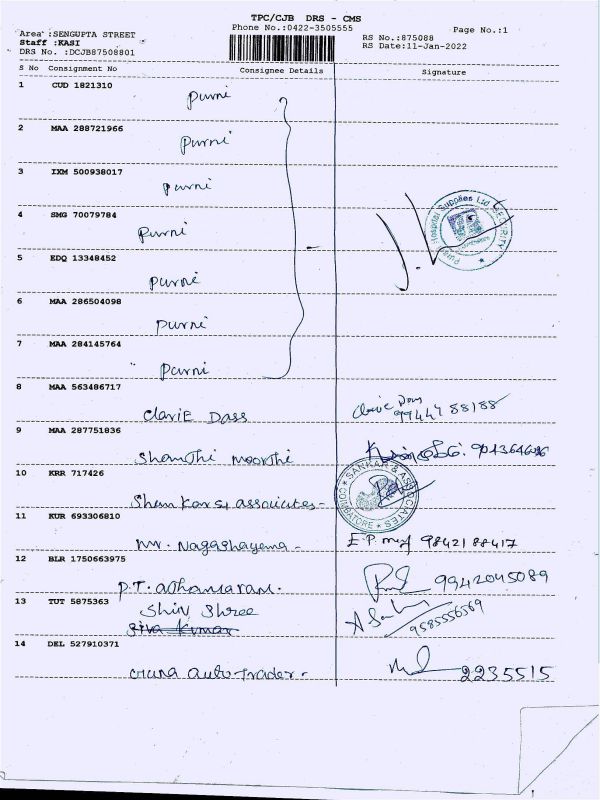 TPC/CJB DRS - CMS
Phone No.:0422-3505555
Page No.:1
Area :SENGUPTA STREET
Staff :KASI
DRS No. :DCJB87508801
RS No.:875088
RS Date:11-Jan-2022
S No Consignment No Consignee Details Signature
1 CUD 1821310
Purni
2 MAA 288721966
Purni
3 IXM 500938017
Purni
4 SMG 70079784
Purni
5 EDQ 13348452
Purni
6 MAA 286504098
Purni
7 MAA 284145764
Purni
Hospital Supplies Ltd SECURITY
8 MAA 563486717
ClariE Dass
99447 88188
9 MAA 287751836
Shamthi moorthi
10 KRR 717426
Shankar & associates -
SANKAR & ASSOCIATES
COIMBATORE
11 KUR 693306810
Mr. Nagashayema -
98421 88417
12 BLR 1750663975
P.T. athamaram.
9942045089
13 TUT 5875363
Shiv Shree
Siva Kumar
9585556569
14 DEL 527910371
Auto Trader -
2235515